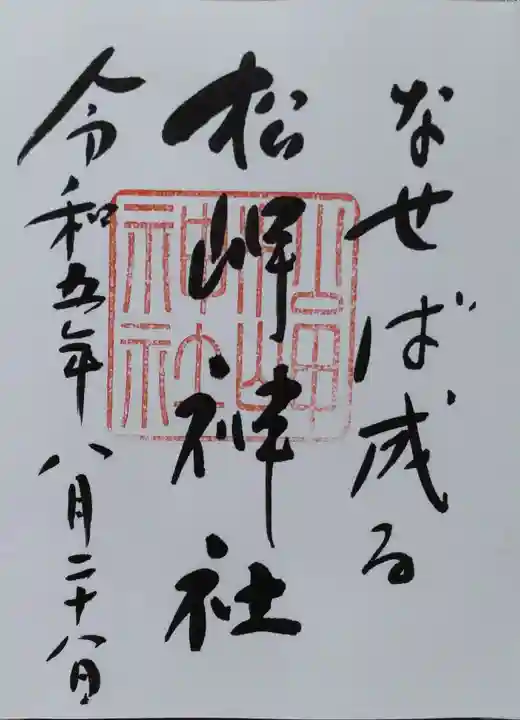 なせば成る
松岬神社
令和五年八月二十八日